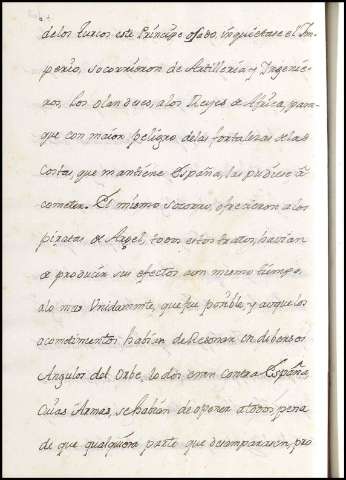 de los turcos este Príncipe osado, inquietase el Im-
perio, socorrieron de Artillería y Ingenie-
ros, los olandeses, a los Reyes de Africa, para-
que con maior peligro de las fortalezas de las
Costas, que mantiene España, las pudiese a-
cometer. El mismo socorro, ofrecieron a los
piratas de Argel, todos estos tratos, havían
de producir sus efectos a un mismo tiempo,
a lo mas Unidamente, que fue posible, y aunque los
acometimentos habían de Resonar en dibersos
Angulos del Orbe, todos eran contra España
Cuias Armas, se habían de oponer a todos pena
de que qualquiera parte que desamparasen, pro